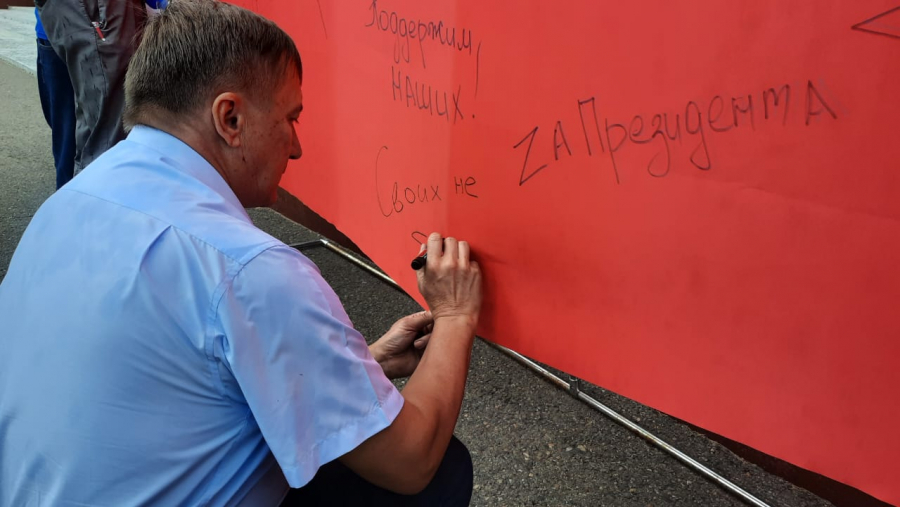 Поддержим
наших!
Своих не
ZА Президента